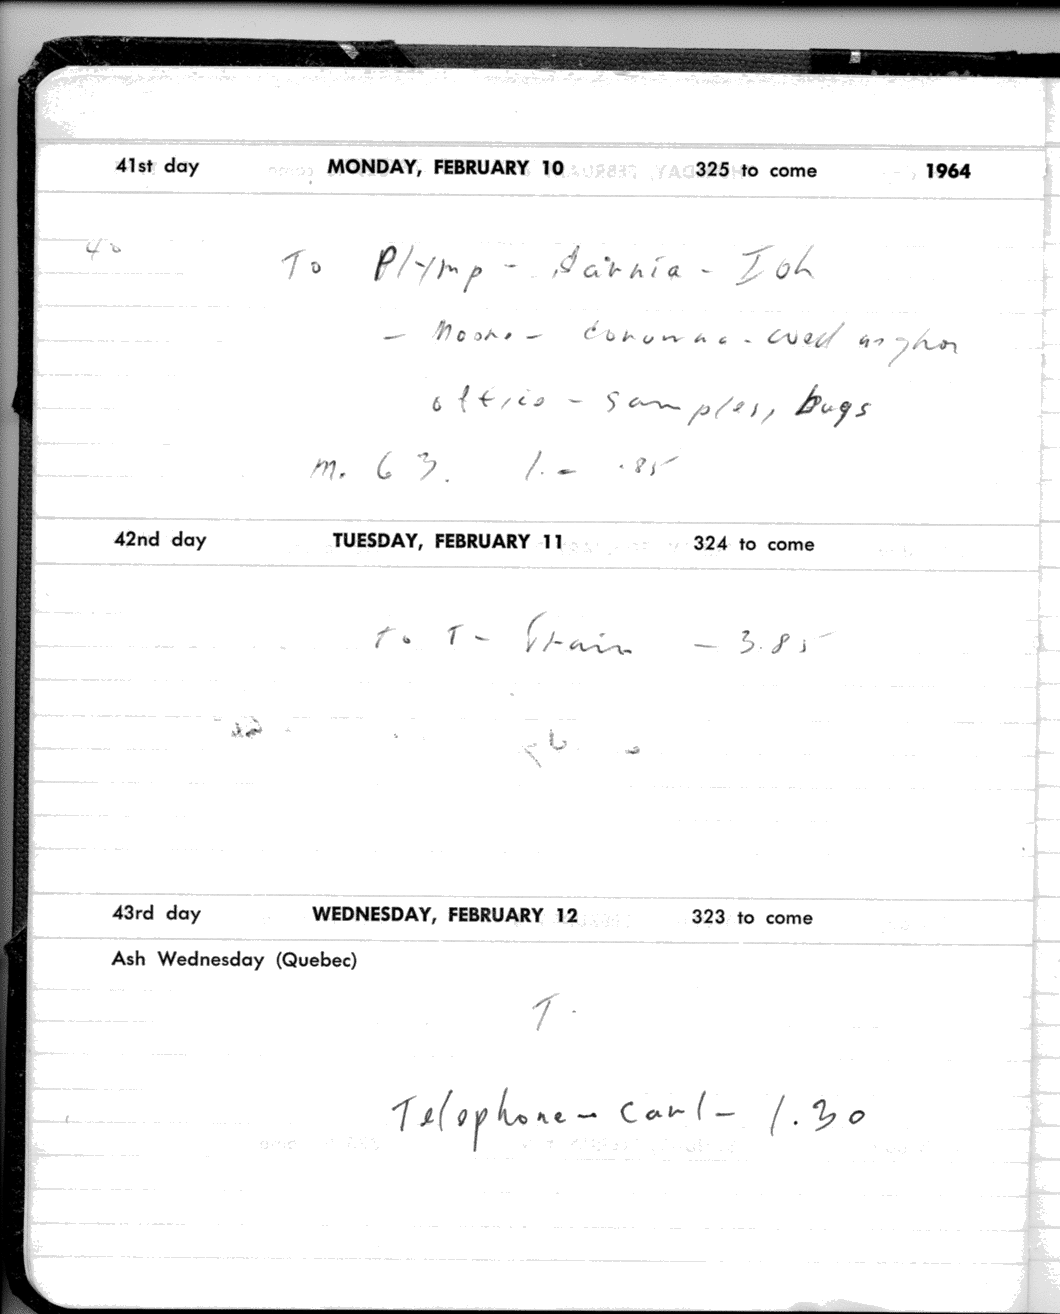 41st day MONDAY, FEBRUARY 10 325 to come 1964
40 To Plymp - Sarnia -
- Moore - Corunna -
office - samples, bugs
m. 63. 1. - .85
42nd day TUESDAY, FEBRUARY 11 324 to come
To T - train - 3.85
43rd day WEDNESDAY, FEBRUARY 12 323 to come
Ash Wednesday (Quebec)
T.
Telephone - Carl - 1.30